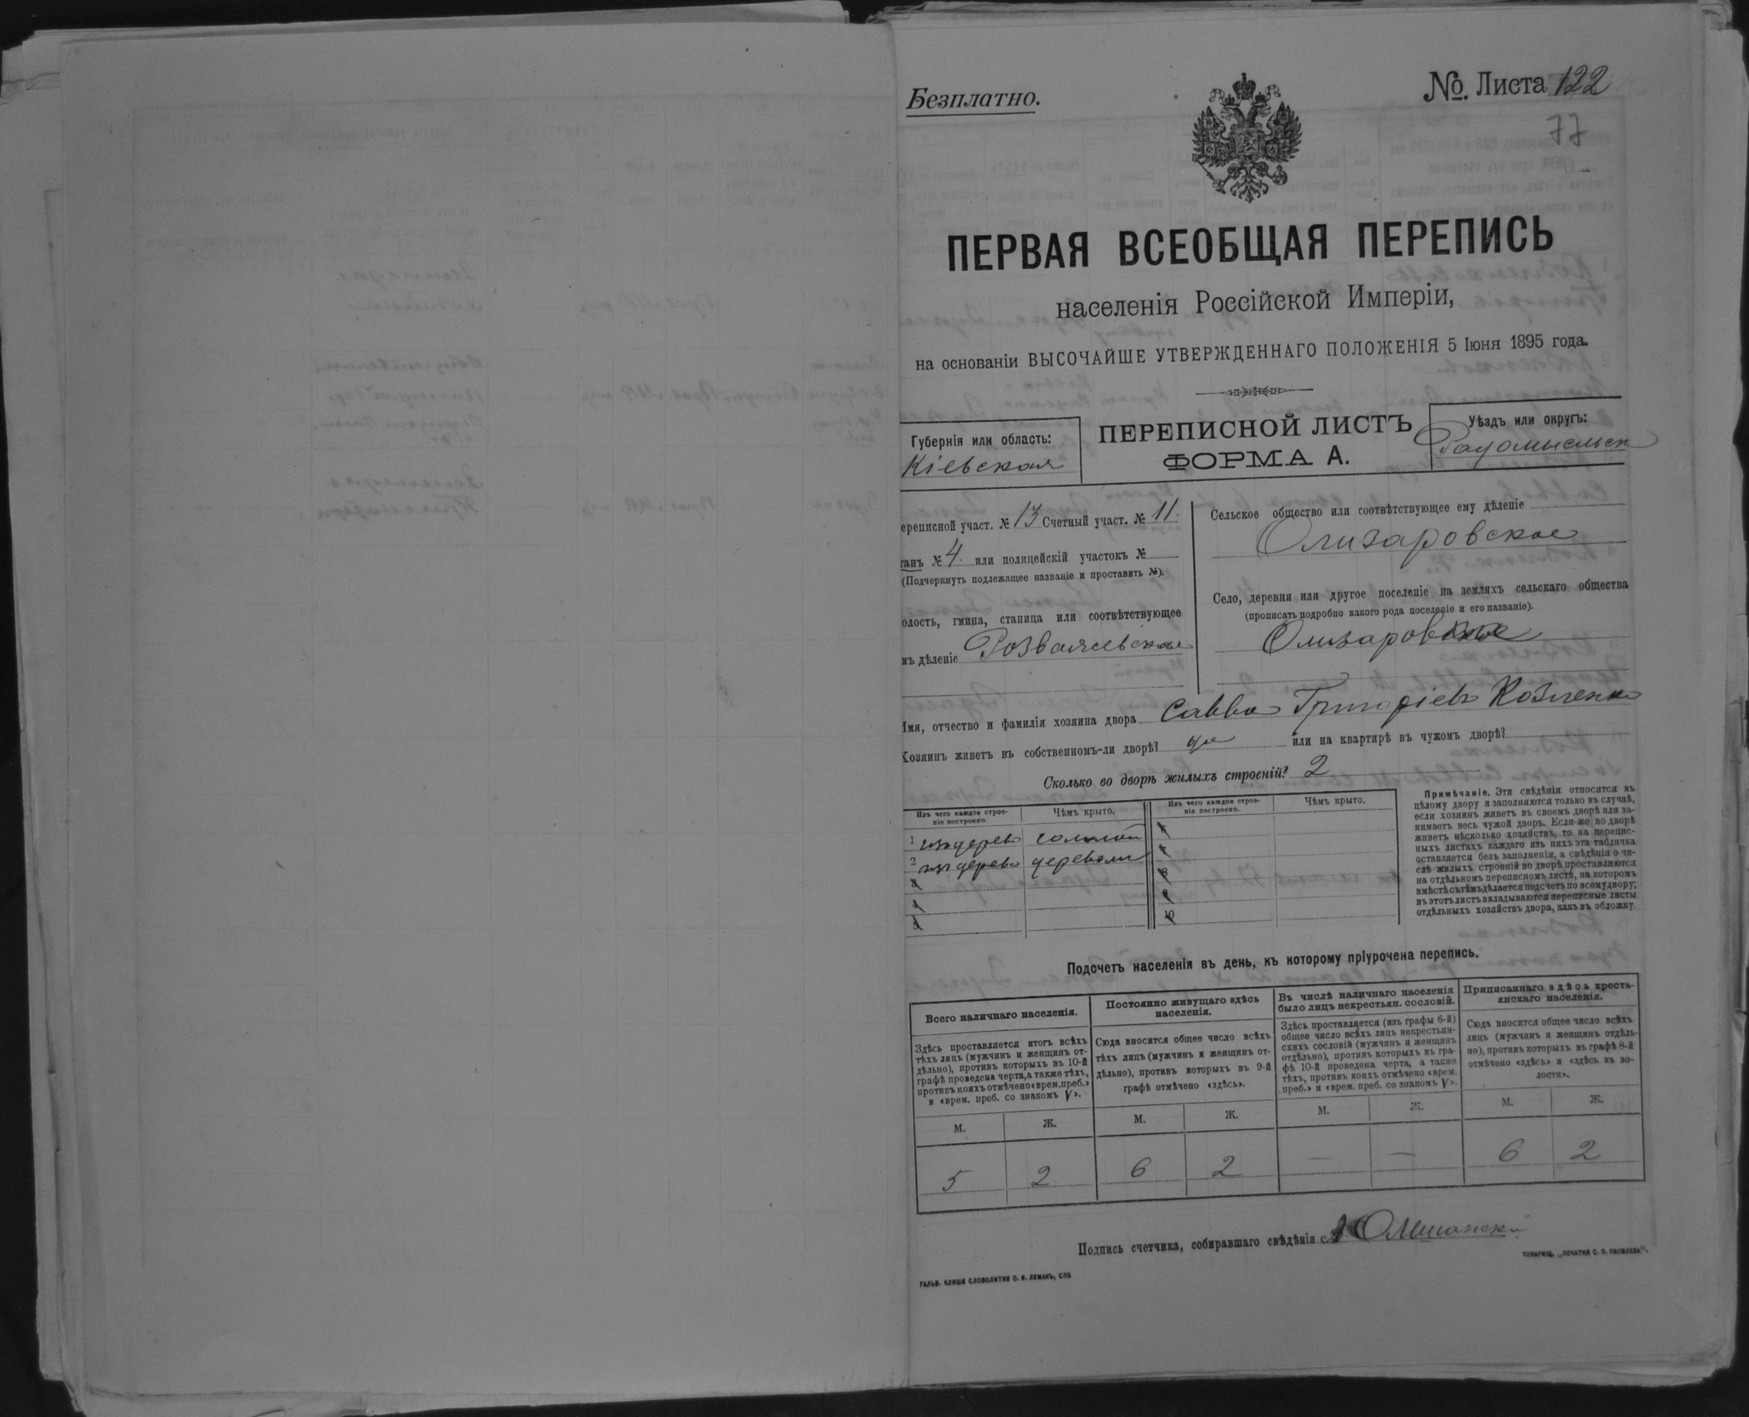 Безплатно.
№. Листа 122
77
ПЕРВАЯ ВСЕОБЩАЯ ПЕРЕПИСЬ
населенія Россійской Имперіи,
на основаніи ВЫСОЧАЙШЕ УТВЕРЖДЕННАГО ПОЛОЖЕНІЯ 5 Іюня 1895 года.
Губернія или область:
Кіевская
ПЕРЕПИСНОЙ ЛИСТЪ
ФОРМА А.
Уѣздъ или округъ:
Радомысльск
ереписной участ. № 13 Счетный участ. № 11.
танъ № 4. или полицейскій участокъ №
(Подчеркнуть подлежащее названіе и проставить №).
олость, гмина, станица или соотвѣтствующее
мъ дѣленіе Розважевская
Сельское общество или соотвѣтствующее ему дѣленіе
Олизаровское
Село, деревня или другое поселеніе на земляхъ сельскаго общества
(прописать подробно какого рода поселеніе и его названіе).
Имя, отчество и фамилія хозяина двора Савва Григоріевъ Козленко
Хозяинъ живетъ въ собственномъ-ли дворѣ? да или на квартирѣ въ чужомъ дворѣ?
Сколько во дворѣ жилыхъ строеній? 2
Изъ чего каждое строе-
ніе построено.
Чѣмъ крыто.
Изъ чего каждое строе-
ніе построено.
Чѣмъ крыто.
1 изъ дерева соломой
2 изъ дерева деревомъ
3
4
5
6
7
8
9
10
Примѣчаніе. Эти свѣдѣнія относятся къ
цѣлому двору и заполняются только въ случаѣ,
если хозяинъ живетъ въ своемъ дворѣ или за-
нимаетъ весь чужой дворъ. Если-же во дворѣ
живетъ нѣсколько хозяйствъ, то на перепис-
ныхъ листахъ каждаго изъ нихъ эта табличка
оставляется безъ заполненія, а свѣдѣнія о чи-
слѣ жилыхъ строеній во дворѣ проставляются
на отдѣльномъ переписномъ листѣ, на которомъ
вмѣстѣ съ тѣмъ дѣлается подсчетъ по всему двору;
въ этотъ листъ вкладываются переписные листы
отдѣльныхъ хозяйствъ двора, какъ въ обложку.
Подсчетъ населенія въ день, къ которому пріурочена перепись.
Всего наличнаго населенія.
Здѣсь проставляется итогъ всѣхъ
тѣхъ лицъ (мужчинъ и женщинъ от-
дѣльно), противъ которыхъ въ 10-й
графѣ проведена черта, а также тѣхъ,
противъ коихъ отмѣчено «врем. преб.»
и «врем. преб. со знакомъ V».
М. Ж.
5 2
Постоянно живущаго здѣсь
населенія.
Сюда вносится общее число всѣхъ
тѣхъ лицъ (мужчинъ и женщинъ от-
дѣльно), противъ которыхъ въ 9-й
графѣ отмѣчено «здѣсь».
М. Ж.
6 2
Въ числѣ наличнаго населенія
было лицъ некрестьян. сословій.
Здѣсь проставляется (изъ графы 6-й)
общее число всѣхъ лицъ некрестьян-
скихъ сословій (мужчинъ и женщинъ
отдѣльно), противъ которыхъ въ гра-
фѣ 10-й проведена черта, а также
тѣхъ, противъ коихъ отмѣчено «врем.
преб.» и «врем. преб. со знакомъ V».
М. Ж.
— —
Приписаннаго здѣсь кресть-
янскаго населенія.
Сюда вносится общее число всѣхъ
лицъ (мужчинъ и женщинъ отдѣль-
но), противъ которыхъ въ графѣ 8-й
отмѣчено «здѣсь» и «здѣсь въ во-
лости».
М. Ж.
6 2
Подпись счетчика, собиравшаго свѣдѣнія
ГАЛЬВ. КЛИШЕ СЛОВОЛИТНИ О. И. ЛЕМАНЪ, СПБ
ТОВАРИЩ. „ПЕЧАТНЯ С. П. ЯКОВЛЕВА“.